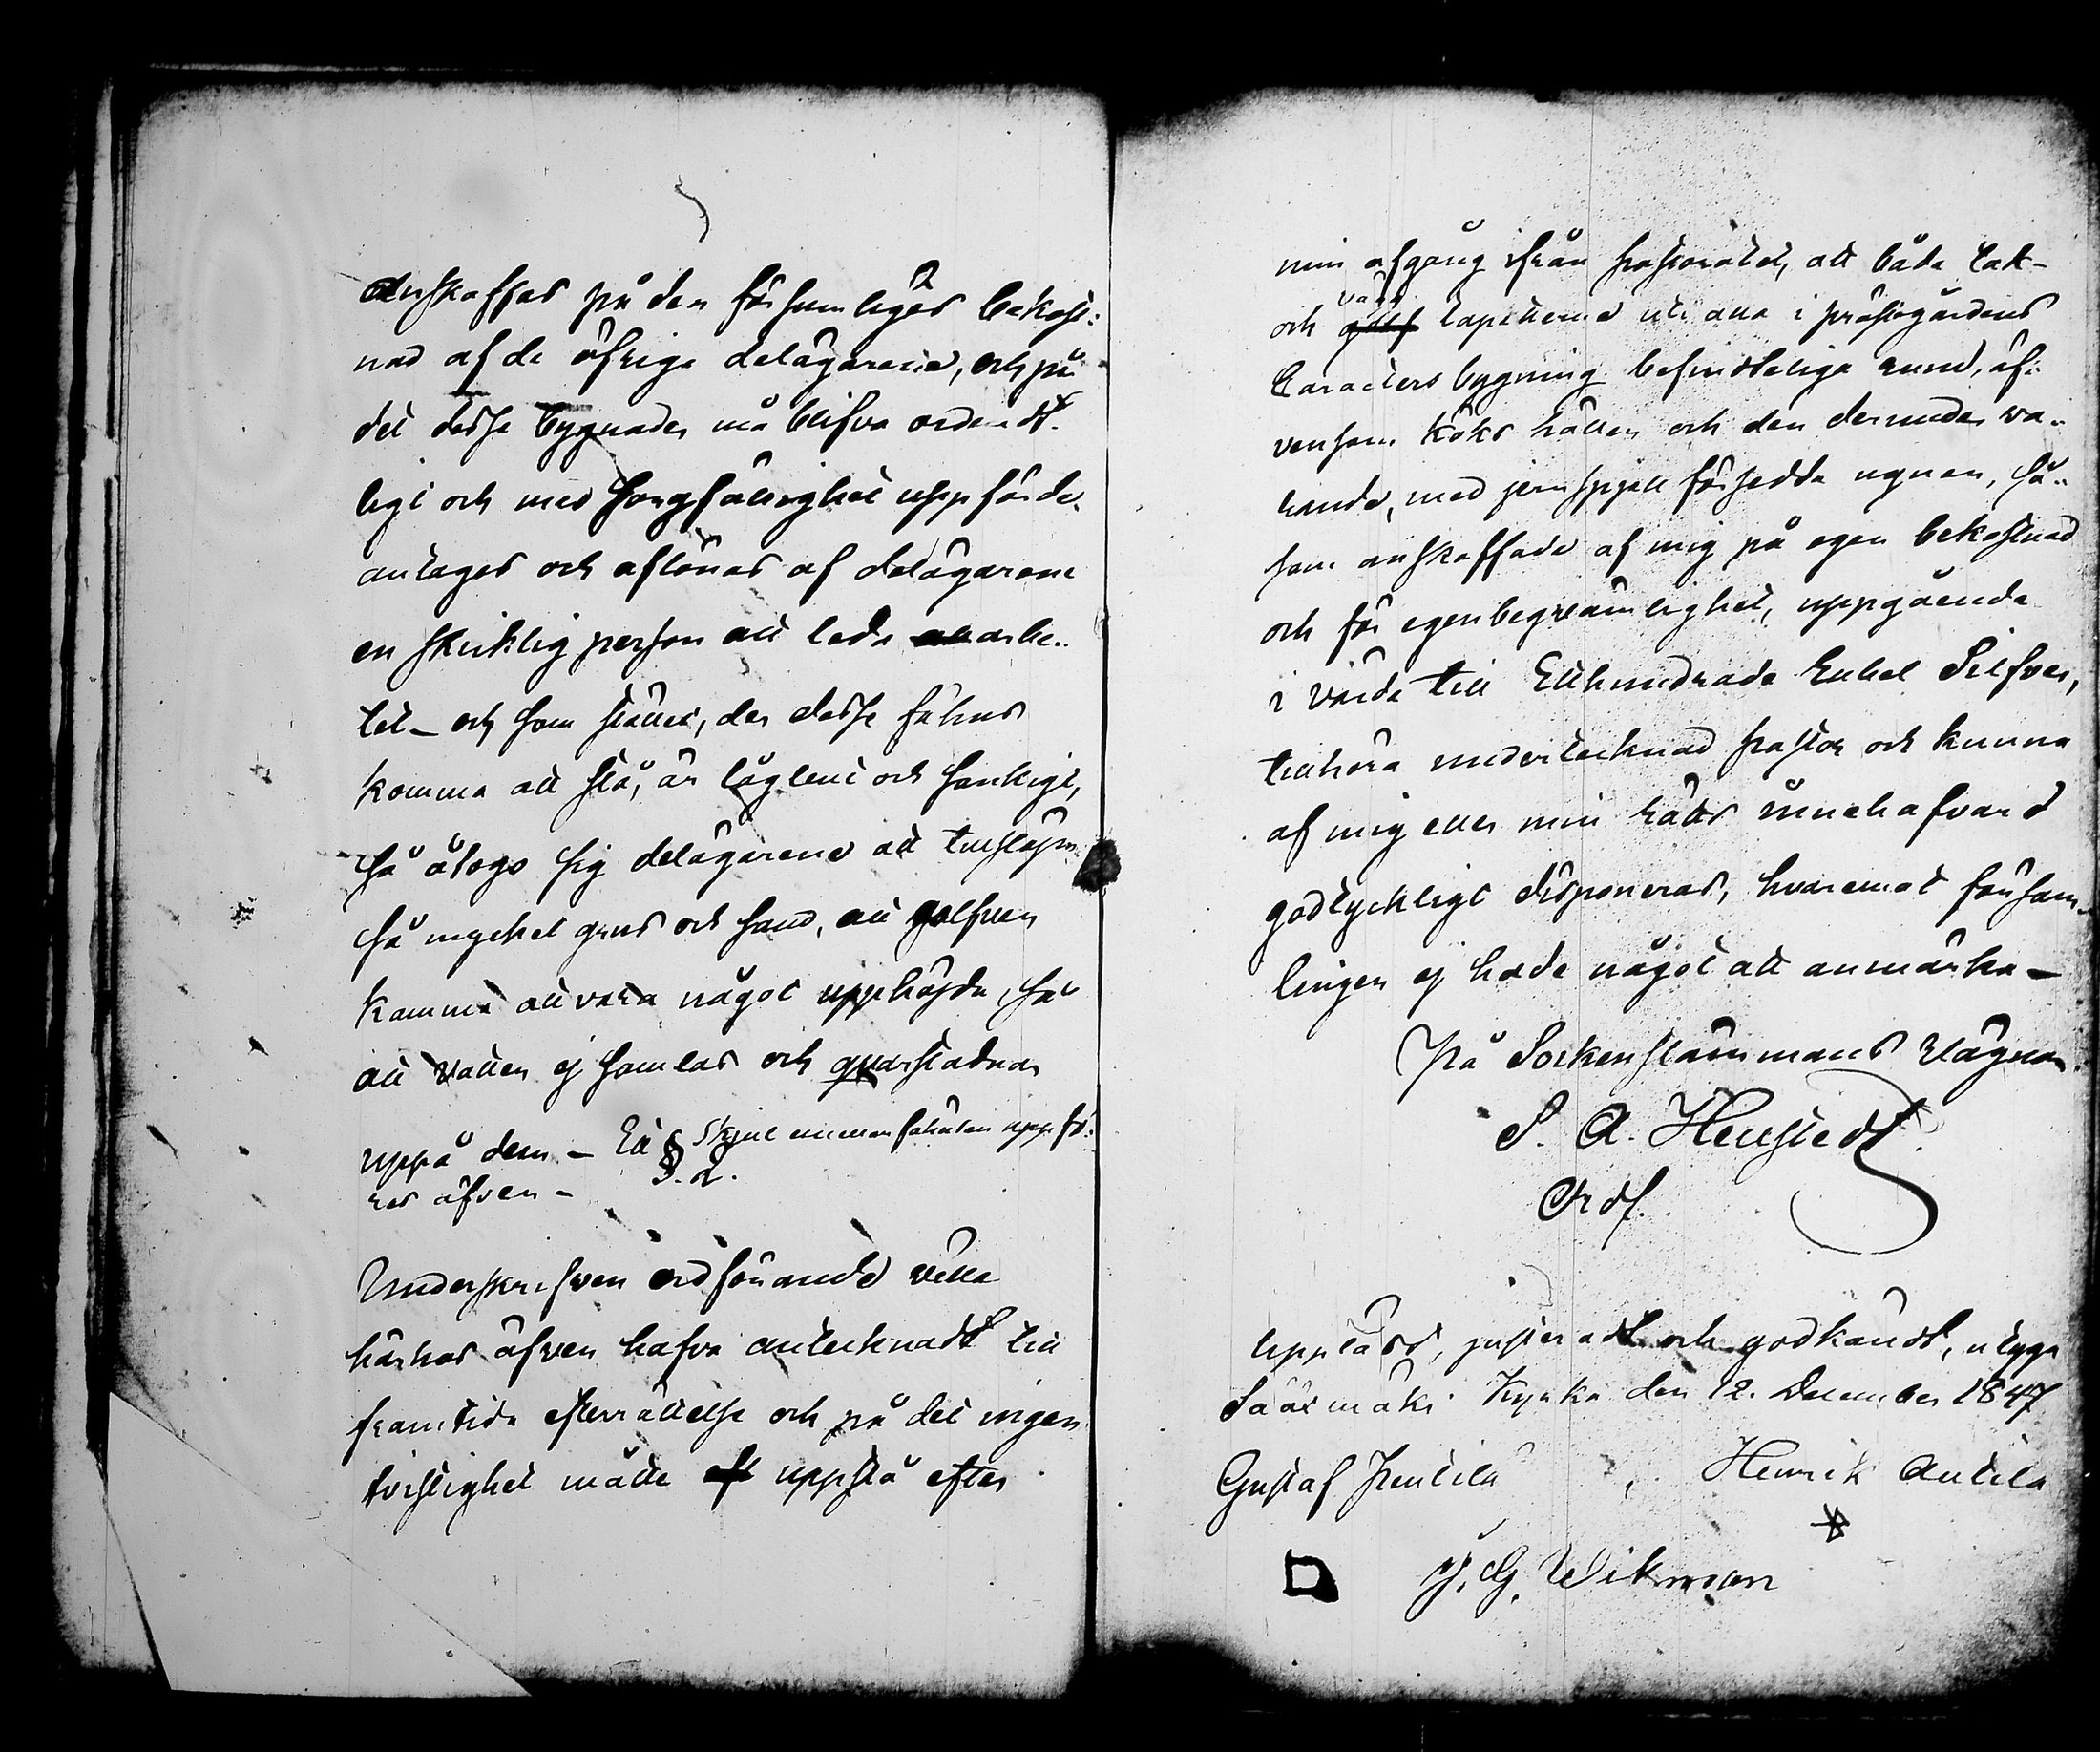 anskaffas på den försumliges bekost:
nad af de öfriga delägarene, och på
det desse bygnader må blifva ordendt.
ligt och med sorgfällighet uppförde.
antages och aflönas af delägarene
en skicklig person att leda arbe..
tet – och som stället, der desse
komma att stå, är låglent och sankigt,
så åtogo sig delägarene att
så mycket grus och sand, att golfven
komma att vara något upphöjda, så
att vatten ej samlas och qvarstadnar
uppå dem. – Ett Skjul emellan uppfö:
res äfven –
§. 2.
Underskrifven ordförande ville
härhos äfven hafva antecknadt till
framtida efterrättelse och på det ingen
tvistighet måtte uppstå efter
min afgång ifrån pastoratet, att både tak-
och vägg tapeterne uti alla i prästgårdens
Caracters bygning befindteliga rum, äf:
vensom köks hällen och den derunder va..
rande, med jernspjäll försedda ugnen, så..
som anskaffade af mig på egen bekostnad
och för egen beqvämlighet, uppgående
i värde till Etthundrade Rubel Silfver,
tillhöra undertecknad pastor och kunna
af mig eller min rätts innehafvare
godtyckligt disponeras, hvaremot försam..
lingen ej hade något att anmärka –
På Sockenstämmans vägnar
S. A. Hellstedt
Ordf.
Uppläst, justeradt och godkändt, utygar
Sääxmäki Kyrka den 12. December 1847
Gustaf Penttila, Henrik Anttila
J. G. Wikman